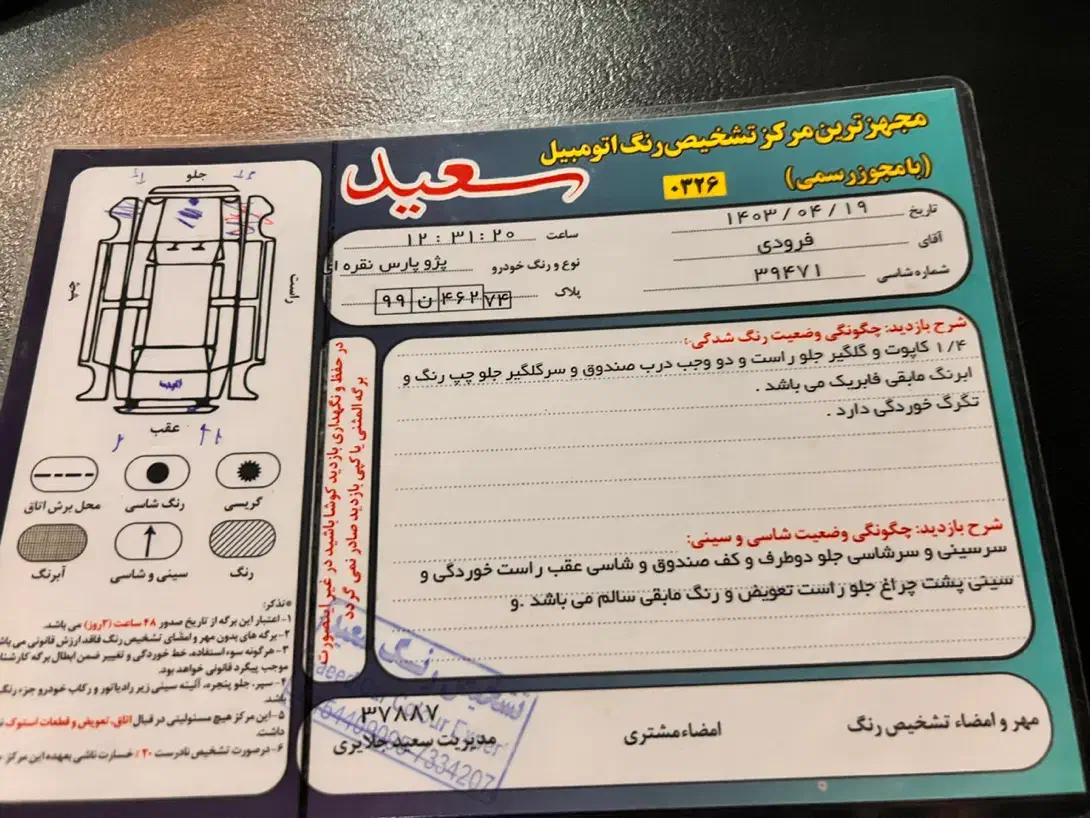 مجهزترین مرکز تشخیص رنگ اتومبیل
سعید
(با مجوز رسمی)
۰۳۲۶
تاریخ ۱۴۰۳/۰۴/۱۹
ساعت ۱۲:۳۱:۲۰
آقای فرودی
نوع و رنگ خودرو پژو پارس نقره ای
شماره شاسی ۳۹۴۷۱
پلاک ۹۹ ن ۴۶۲ ۷۴
شرح بازدید: چگونگی وضعیت رنگ شدگی:
۱/۴ کاپوت و گلگیر جلو راست و دو وجب درب صندوق و سرگلگیر جلو چپ رنگ و
ابرنگ مابقی فابریک می باشد .
تگرگ خوردگی دارد .
شرح بازدید: چگونگی وضعیت شاسی و سینی:
سرسینی و سرشاسی جلو دوطرف و کف صندوق و شاسی عقب راست خوردگی و
سینی پشت چراغ جلو راست تعویض و رنگ مابقی سالم می باشد .و
مهر و امضاء تشخیص رنگ
امضاء مشتری
۳۷۸۸۷
مدیریت سعید جلایری
در حفظ و نگهداری بازدید کوشا باشید در غیر اینصورت
برگه المثنی یا کپی بازدید صادر نمی گردد
جلو
راست
چپ
عقب
گریسی
رنگ شاسی
محل برش اتاق
رنگ
سینی و شاسی
آبرنگ
*تذکر:
۱- اعتبار این برگه از تاریخ صدور ۴۸ ساعت (۲روز) می باشد.
۲- برگه های بدون مهر و امضای تشخیص رنگ فاقد ارزش قانونی می باشد
۳- هرگونه سوء استفاده، خط خوردگی و تغییر ضمن ابطال برگه
موجب پیگرد قانونی خواهد بود.
۴- سپر، جلو پنجره، آئینه سینی زیر رادیاتور و رکاب خودرو جزء رنگ
باشد.
۵- این مرکز هیچ مسئولیتی در قبال اتاق، تعویض و قطعات استوک
داشت.
۶- درصورت تشخیص نادرست ۲۰٪ خسارت ناشی بعهده این مرکز